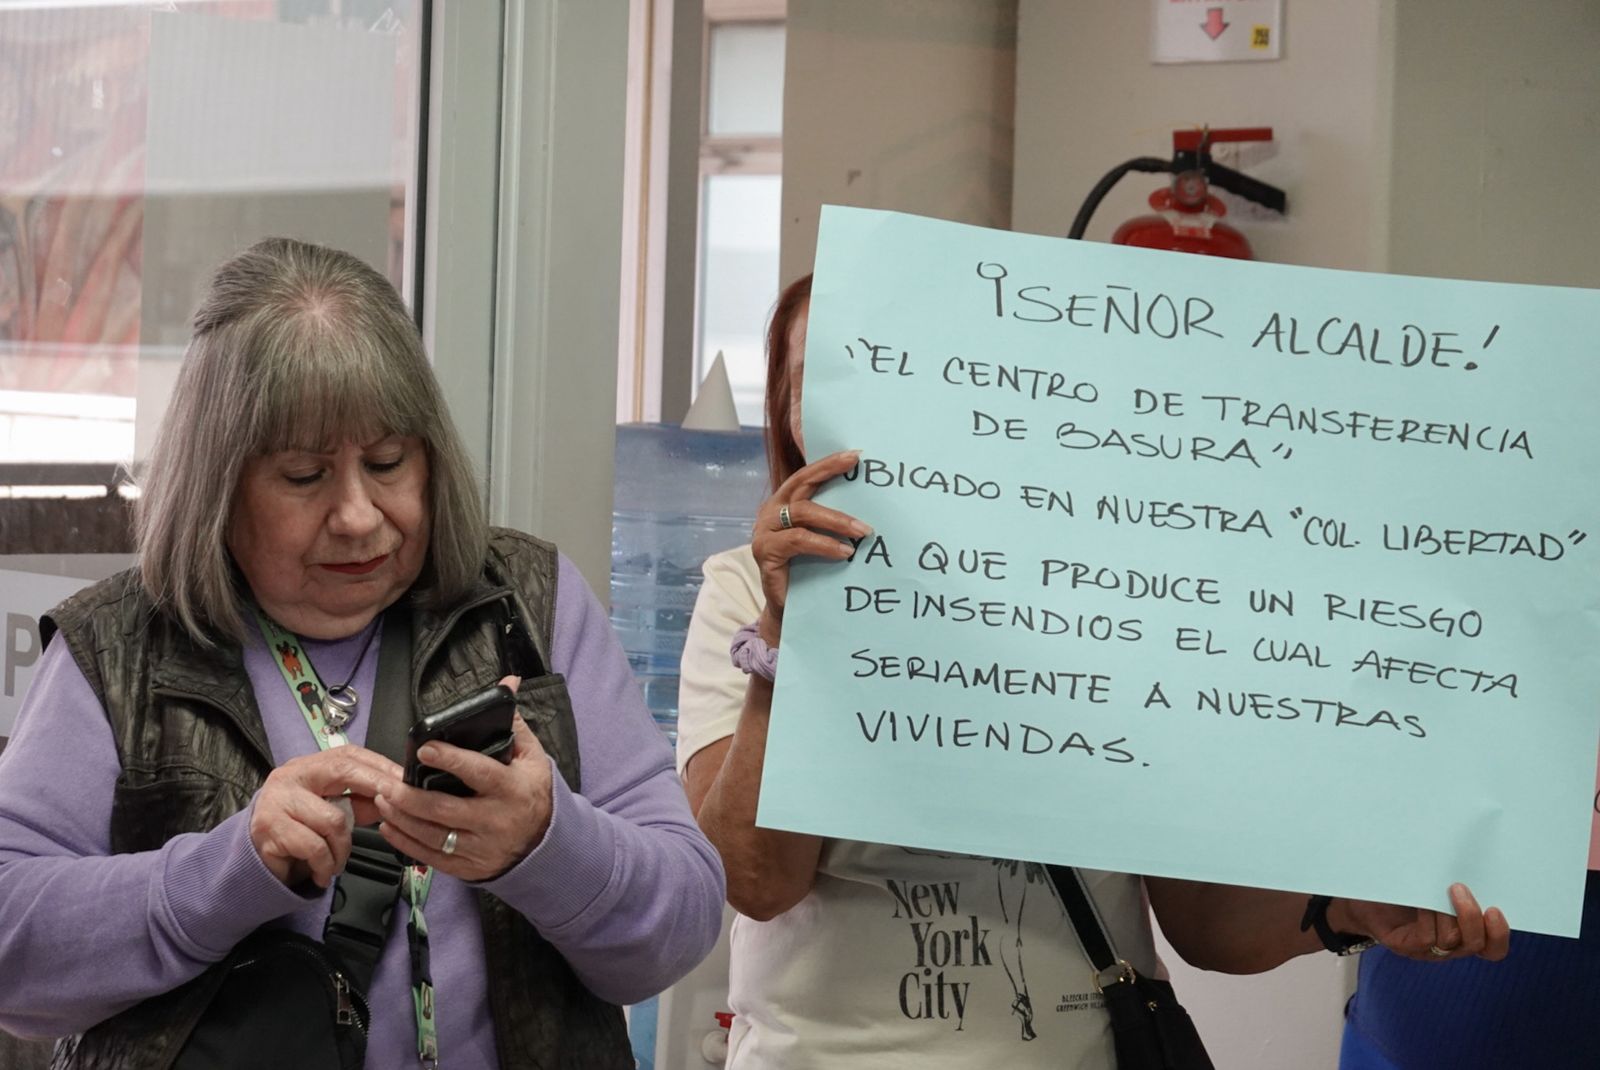 ¡SEÑOR ALCALDE!
"EL CENTRO DE TRANSFERENCIA
DE BASURA"
UBICADO EN NUESTRA "COL. LIBERTAD"
YA QUE PRODUCE UN RIESGO
DE INSENDIOS EL CUAL AFECTA
SERIAMENTE A NUESTRAS
VIVIENDAS.
New
York
City
P